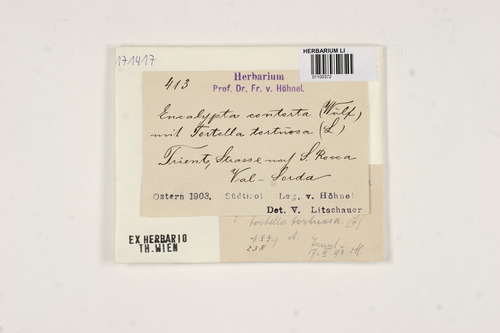 171417
HERBARIUM LI
01100372
413
Herbarium
Prof. Dr. Fr. v. Höhnel.
Encalypta contorta (Wulf.)
mit Tortella tortuosa (L)
Trient, Strasse auf S. Rocca
Val-Sorda
Ostern 1903. Südtirol Leg. v. Höhnel
Det. V. Litschauer
tortella tortuosa (L)
238
EX HERBARIO
TH. WIEN